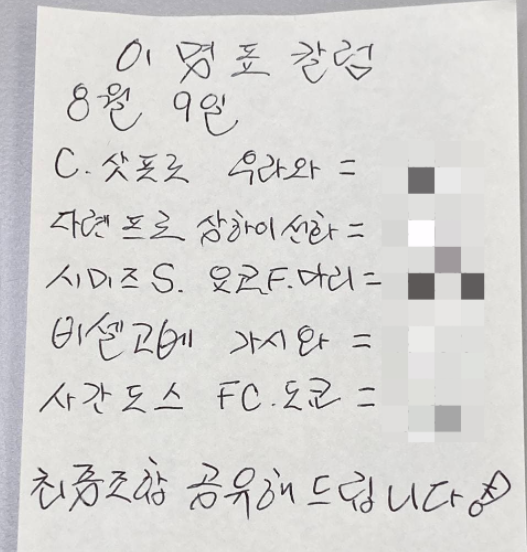 이명표 칼럼
8월 9일
C.삿포로 우라와 =
다렌프로 상하이선화 =
시미즈S. 요코F.마리 =
비셀고베 가시와 =
사간도스 FC.도쿄 =
최종조합 공유해드립니다